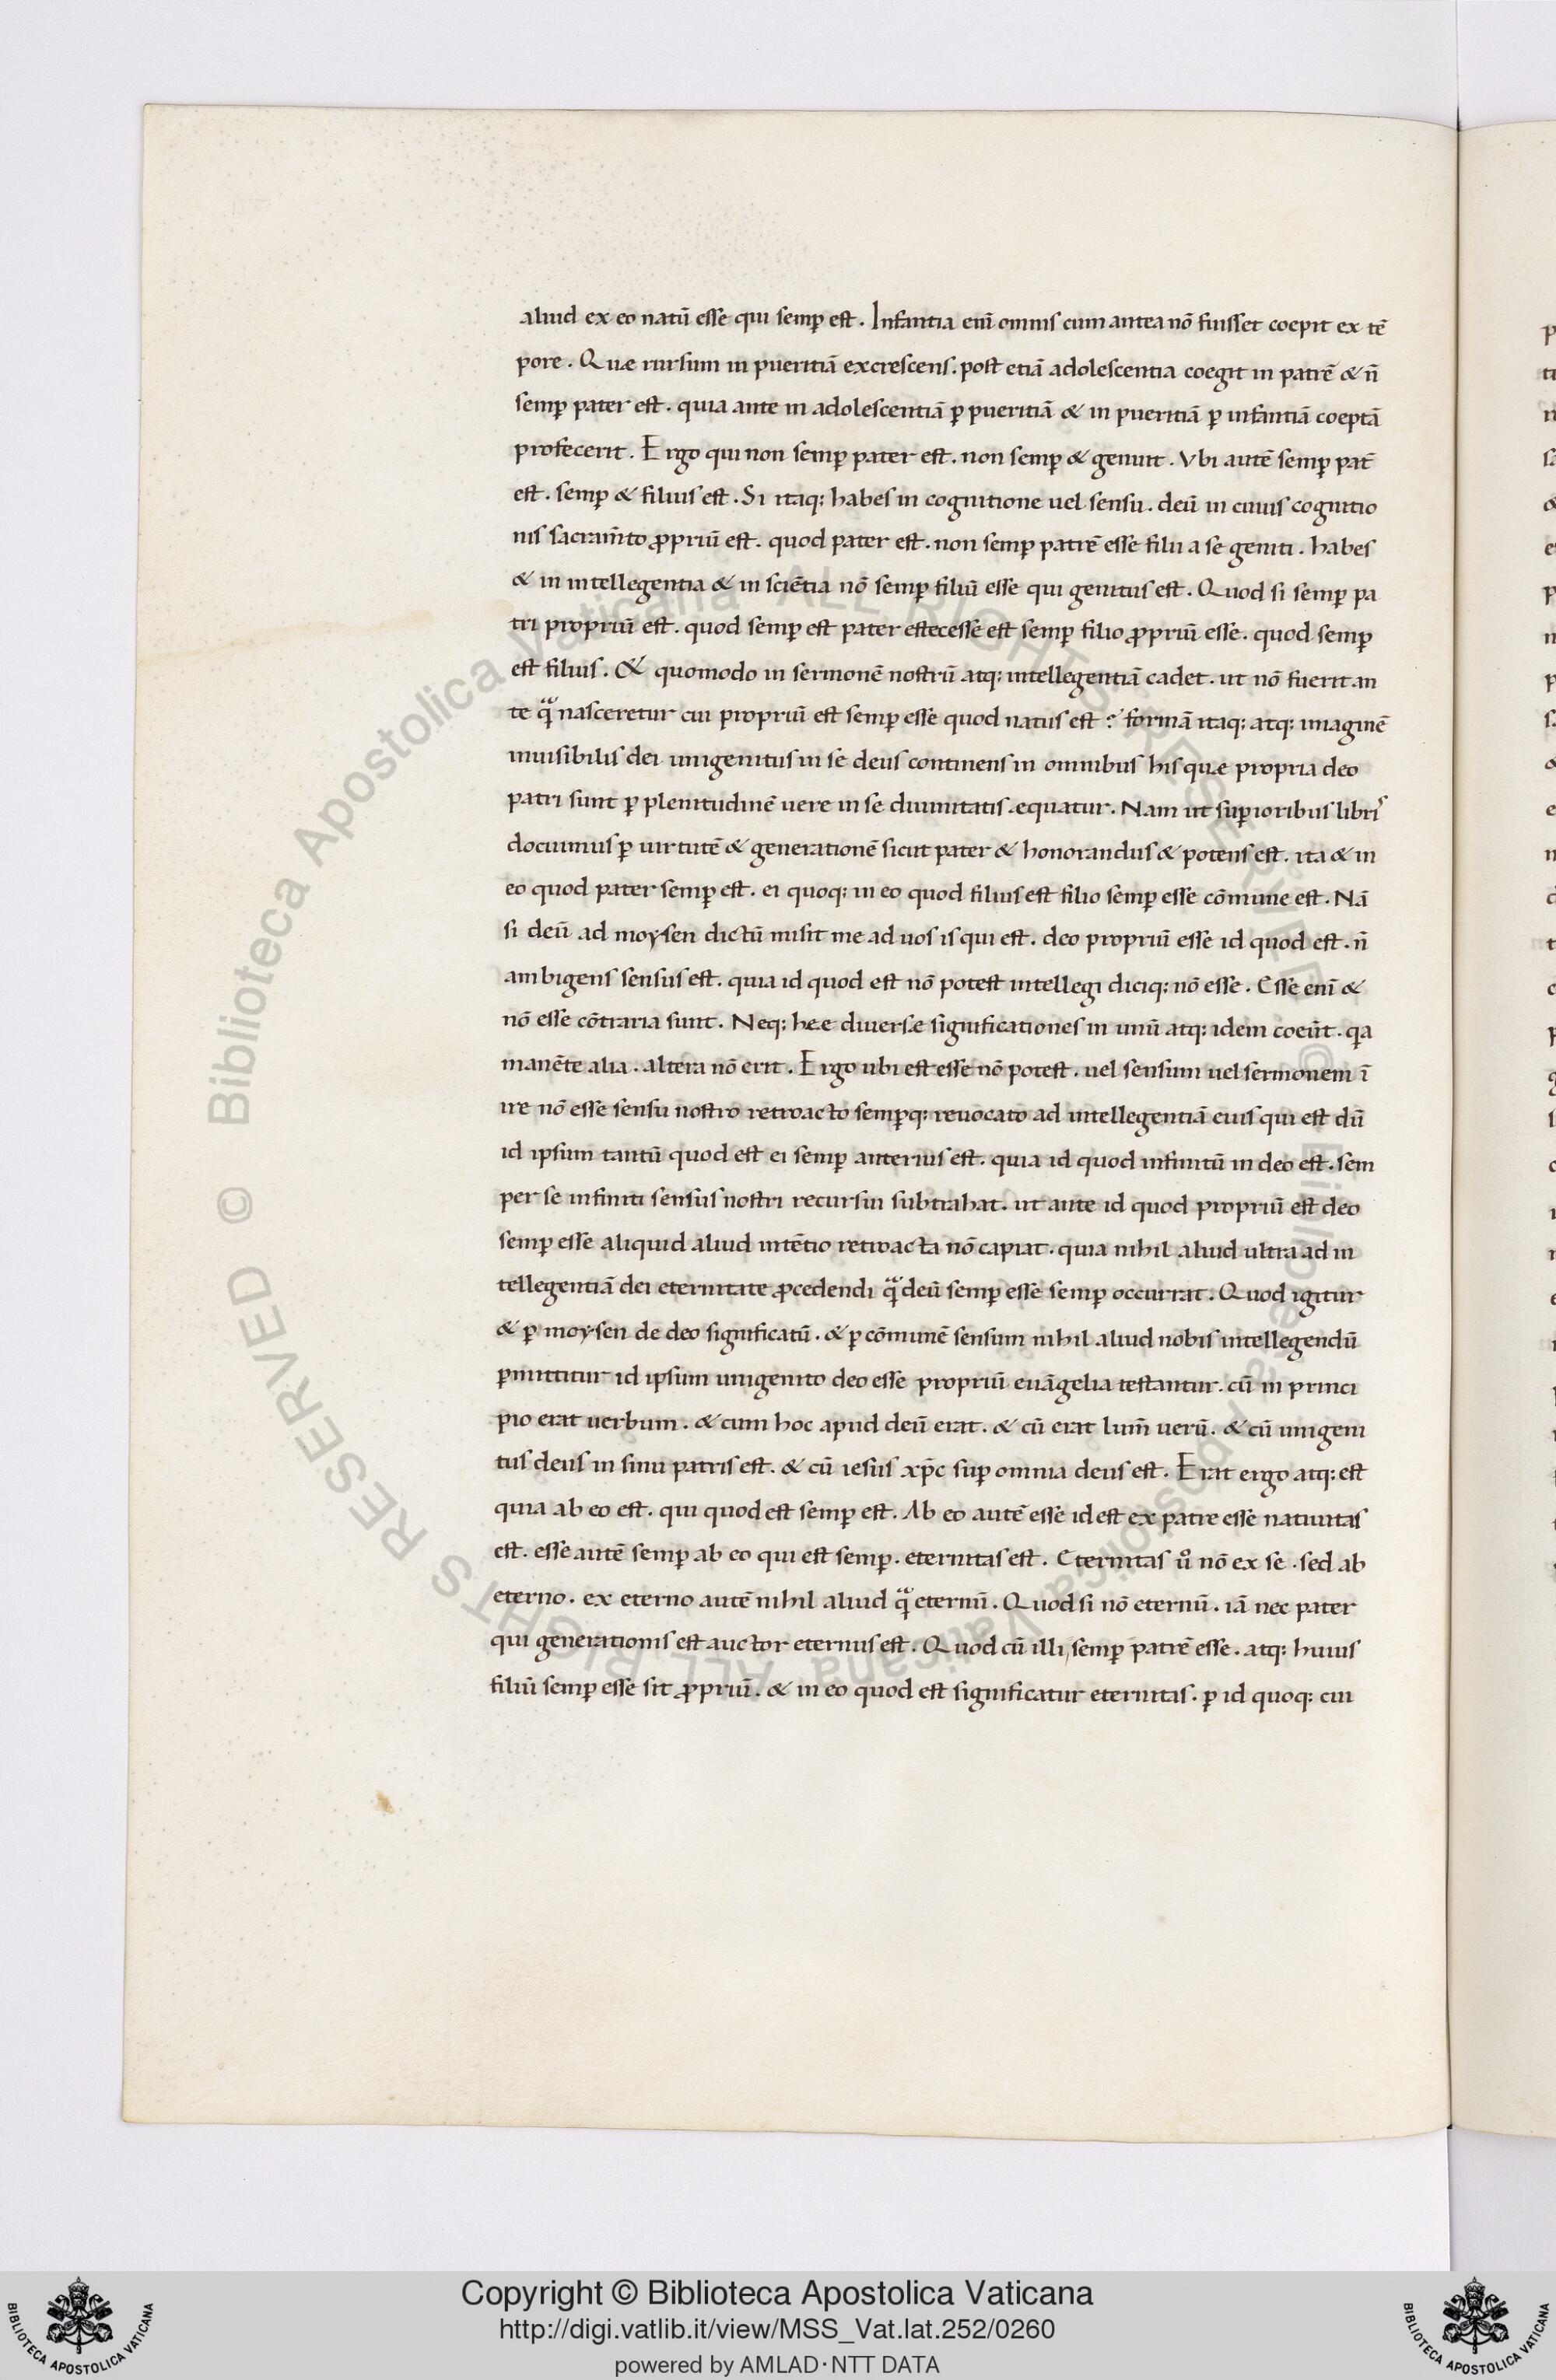 aliud ex eo natū esse qui semꝑ est. Infantia enī omnis cum antea nō fuisset coepit ex tē
pore. Quæ rursum in pueritiā excrescens. post etiā adolescentia coegit in patrē & n̄
semꝑ pater est. quia ante in adolescentiā ꝑ pueritiā & in pueritiā ꝑ infantiā coeptā
profecerit. Ergo qui non semꝑ pater est. non semꝑ & genuit. Vbi autē semꝑ pat̄
est. semꝑ & filius est. Si itaq: habes in cognitione uel sensu. deū in cuius cognitio
nis sacram̄to ꝓpriū est. quod pater est. non semꝑ patrē esse filii a se geniti. habes
& in intellegentia & in sciētia nō semꝑ filiū esse qui genitus est. Quod si semꝑ pa
tri propriū est. quod semꝑ est pater estecesse est semꝑ filio ꝓpriū esse. quod semꝑ
est filius. & quomodo in sermonē nostrū atq: intellegentiā cadet. ut nō fuerit an
te qᷓ nasceretur cui propriū est semꝑ esse quod natus est? formā itaq: atq: imaginē
inuisibilis dei unigenitus in se deus continens in omnibus his quæ propria deo
patri sunt ꝑ plenitudinē uere in se diuinitatis. equatur. Nam ut suꝑioribus libris
docuimus ꝑ uirtutē & generationē sicut pater & honorandus & potens est. ita & in
eo quod pater semꝑ est. ei quoq: in eo quod filius est filio semꝑ esse cōmune est. Nā
si deū ad moysen dictū misit me ad uos is qui est. deo propriū esse id quod est. n̄
ambigens sensus est. quia id quod est nō potest intellegi diciq: nō esse. Esse enī &
nō esse cōtraria sunt. Neq: hæe diuersæ significationes in unū atq: idem coeūt. qa
manēte alia. altera nō erit. Ergo ubi est esse nō potest. uel sensum uel sermonem ī
ire nō esse sensu nostro retroacto semꝑq: reuocato ad intellegentiā eius qui est dū
id ipsum tantū quod est ei semꝑ anterius est. quia id quod infinitū in deo est. sem
per se infiniti sensus nostri recursui subtrahat. ut ante id quod propriū est deo
semꝑ esse aliquid aliud intētio retroacta nō capiat. quia nihil aliud ultra ad in
tellegentiā dei eternitate ꝓcedendi qᷓ deū semꝑ esse semꝑ occurrat. Quod igitur
& ꝑ moysen de deo significatū. & ꝑ cōmunē sensum nihil aliud nobis intellegendū
ꝑmittitur id ipsum unigenito deo esse propriū euāgelia testantur. cū in princi
pio erat uerbum. & cum hoc apud deū erat. & cū erat lum̄ uerū. & cū unigeni
tus deus in sinu patris est. & cū iesus xp̄c suꝑ omnia deus est. Erat ergo atq: est
quia ab eo est. qui quod est semꝑ est. Ab eo autē esse id est ex patre esse natiuitas
est. esse autē semꝑ ab eo qui est semꝑ. eternitas est. Eternitas uͦ nō ex se. sed ab
eterno. ex eterno autē nihil aliud qᷓ eternū. Quod si nō eternū. iā nec pater
qui generationis est auctor eternus est. Quod cū illi semꝑ patrē esse. atq: huius
filiū semꝑ esse sit ꝓpriū. & in eo quod est significatur eternitas. ꝑ id quoq: cui
© Biblioteca Apostolica Vaticana ALL RIGHTS RESERVED
© Biblioteca Apostolica Vaticana ALL RIGHTS RESERVED
Copyright © Biblioteca Apostolica Vaticana
http://digi.vatlib.it/view/MSS_Vat.lat.252/0260
powered by AMLAD·NTT DATA
BIBLIOTECA APOSTOLICA VATICANA
BIBLIOTECA APOSTOLICA VATICANA